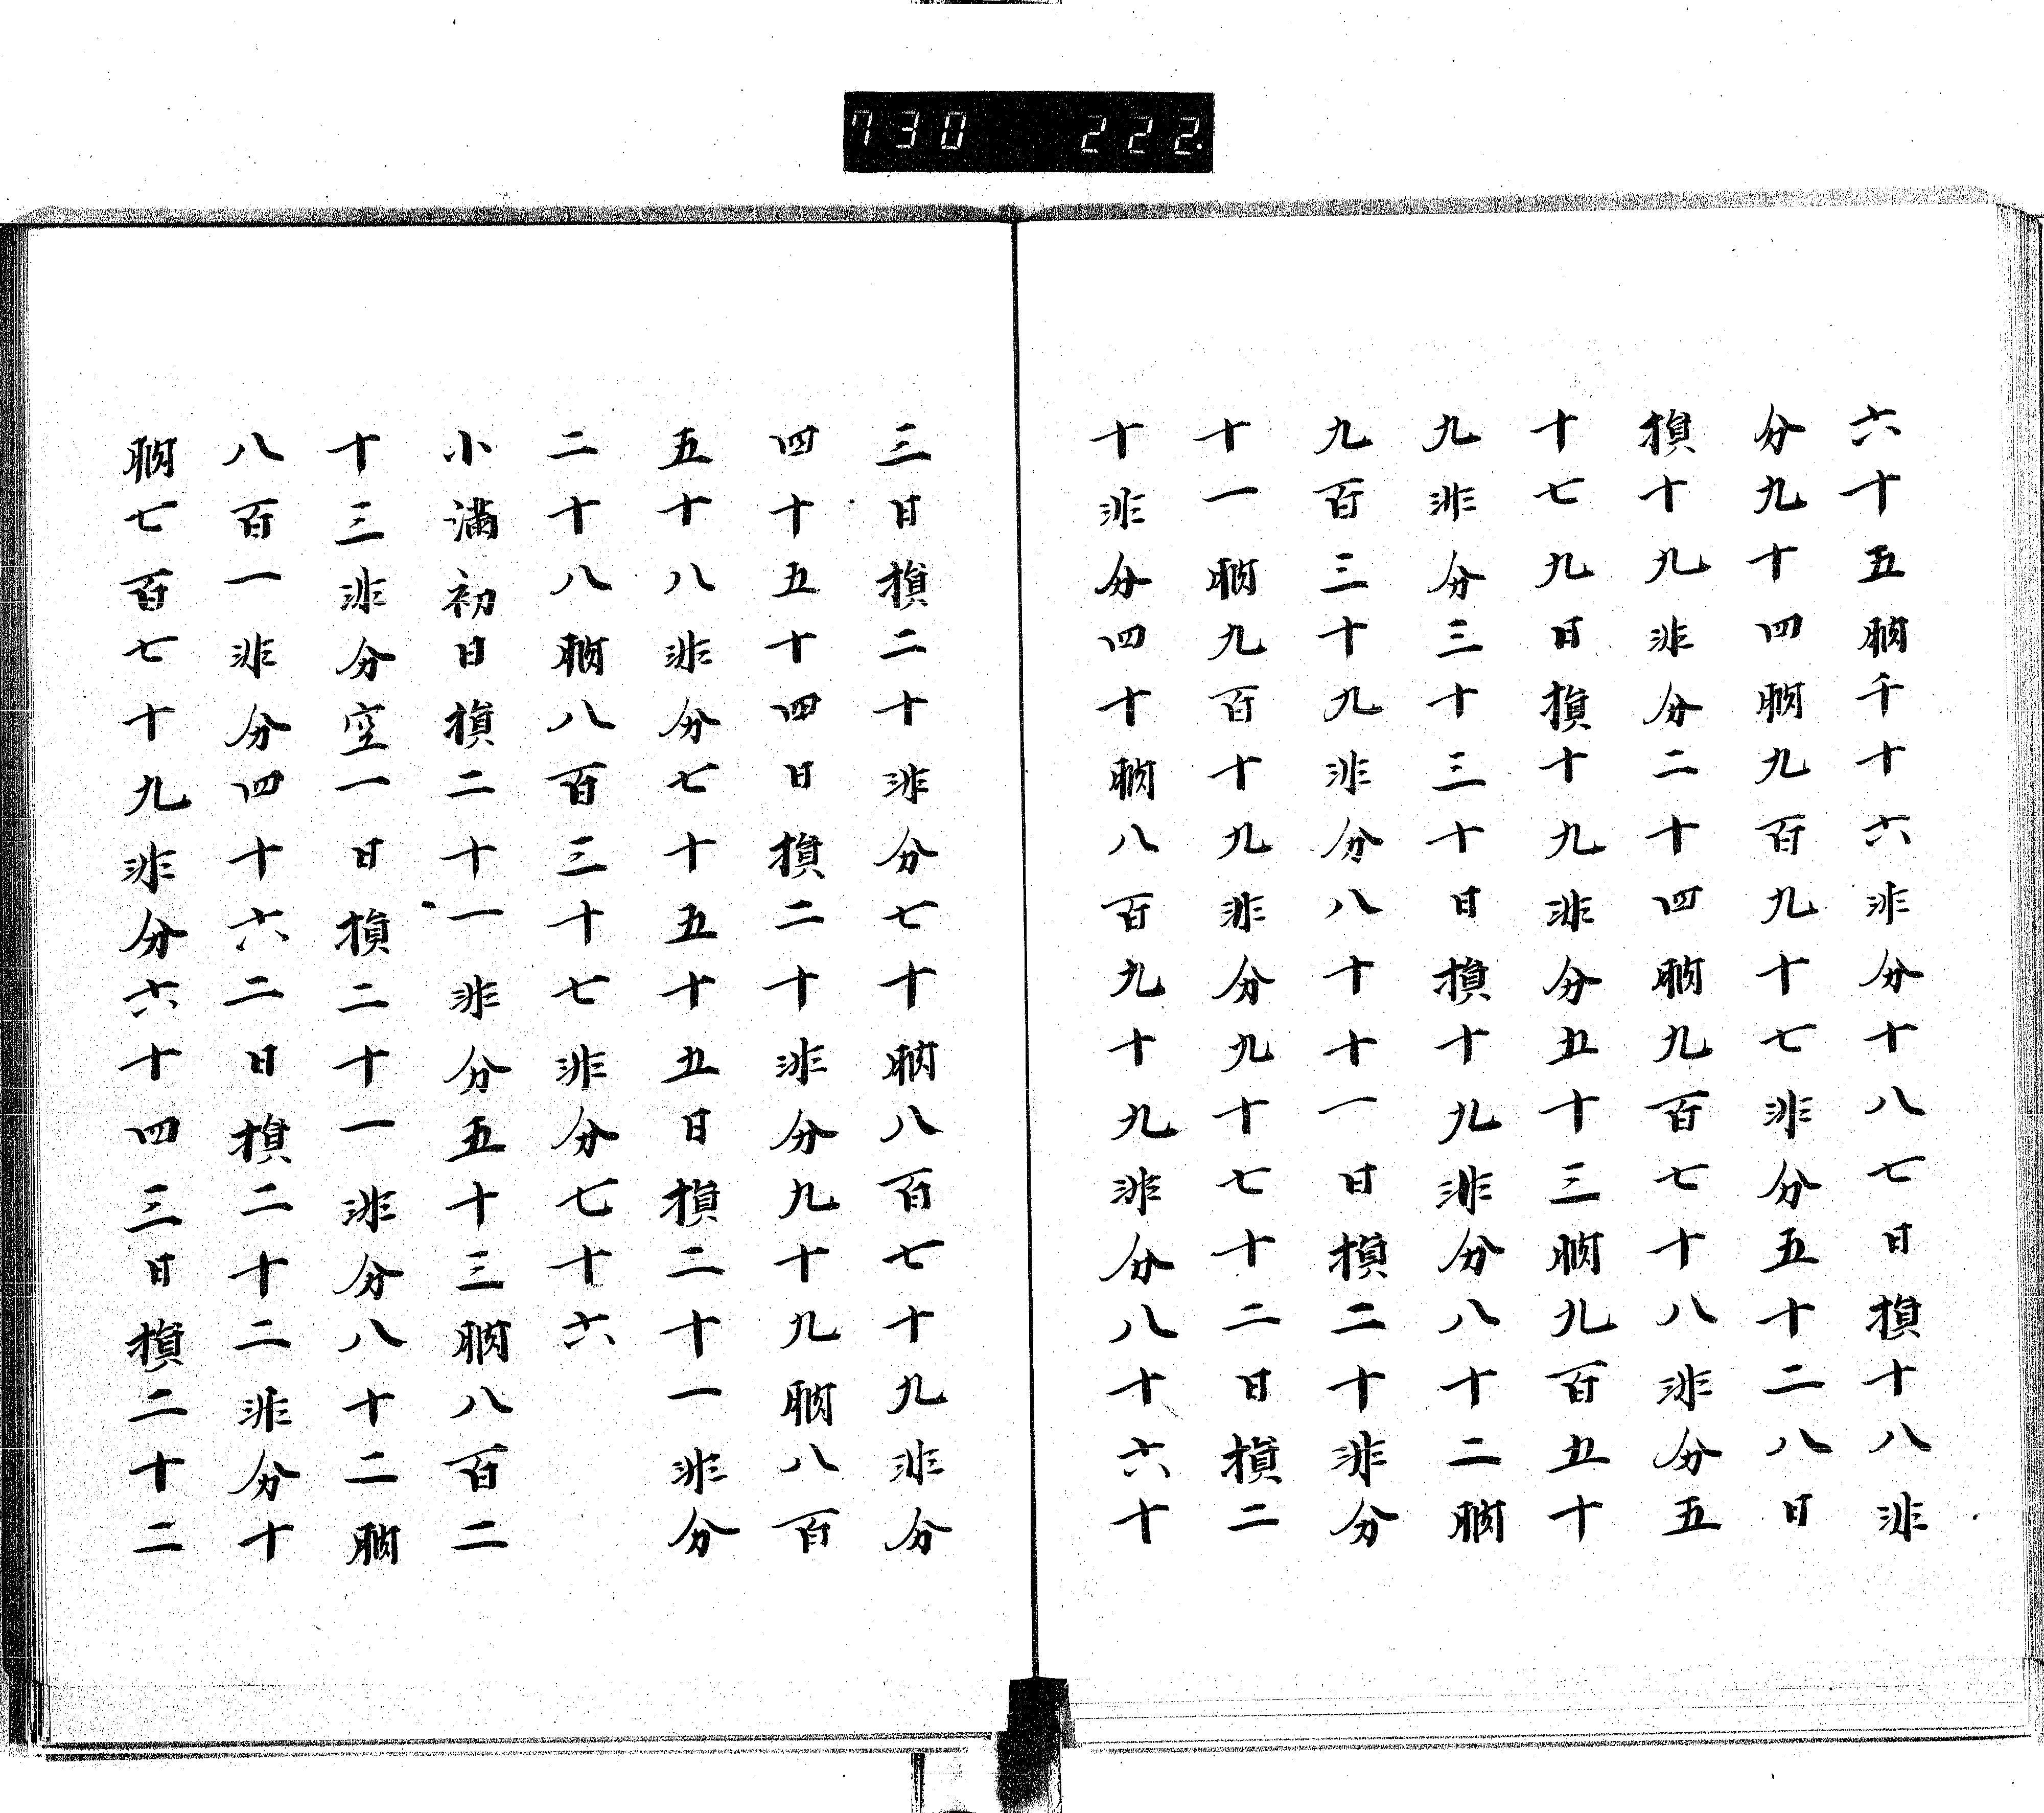 730 222.
六十五朒千十六非分十八七日損十八非
分九十四朒九百九十七非分五十二八日
損十九非分二十四朒九百七十八非分五
十七九日損十九非分五十三朒九百五十
九非分三十三十日損十九非分八十二朒
九百三十九非分八十十一日損二十非分
十一朒九百十九非分九十七十二日損二
十非分四十朒八百九十九非分八十六十
三日損二十非分七十朒八百七十九非分
四十五十四日損二十非分九十九朒八百
五十八非分七十五十五日損二十一非分
二十八朒八百三十七非分七十六
小滿初日損二十一非分五十三朒八百二
十三非分空一日損二十一非分八十二朒
八百一非分四十六二日損二十二非分十
朒七百七十九非分六十四三日損二十二